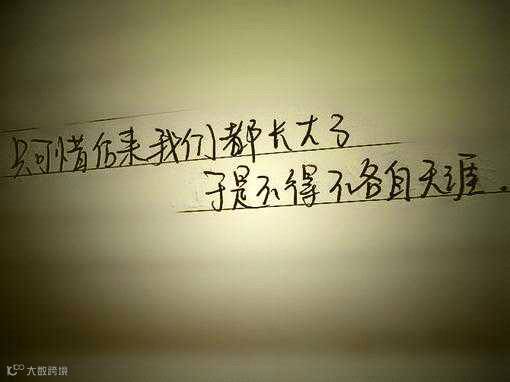 只可惜后来我们都长大了
于是不得不各自天涯.
大数跨境